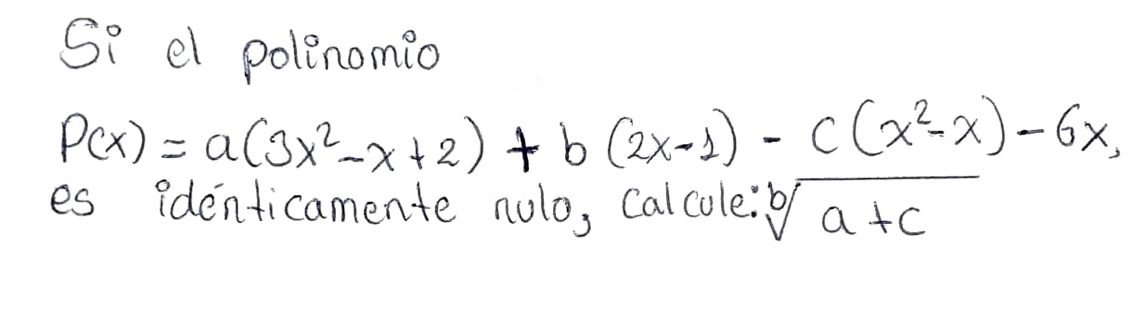 Si el polinomio
P(x) = a(3x²-x+2) + b(2x-1) - c(x²-x) - 6x,
es idénticamente nulo, calcule: ᵇ√(a+c)